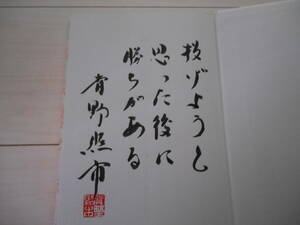 投げようと
思った後に
勝ちがある
青野照市